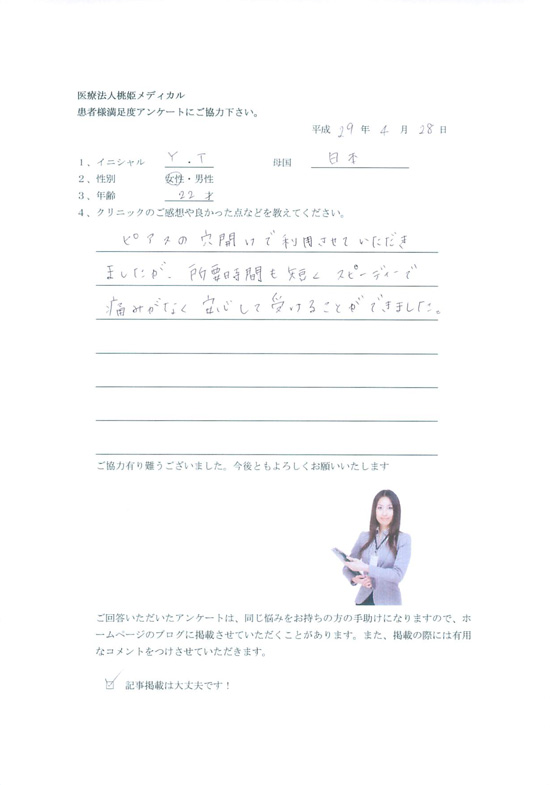 医療法人桃姫メディカル
患者様満足度アンケートにご協力下さい。
平成 29 年 4 月 28 日
1、イニシャル Y . T 母国 日本
2、性別 女性・男性
3、年齢 22 才
4、クリニックのご感想や良かった点などを教えてください。
ピアスの穴開けで利用させていただき
ましたが、所要時間も短く スピーディーで
痛みがなく 安心して受けることができました。
ご協力有り難うございました。今後ともよろしくお願いいたします
ご回答いただいたアンケートは、同じ悩みをお持ちの方の手助けになりますので、ホ
ームページのブログに掲載させていただくことがあります。また、掲載の際には有用
なコメントをつけさせていただきます。
☑ 記事掲載は大丈夫です！